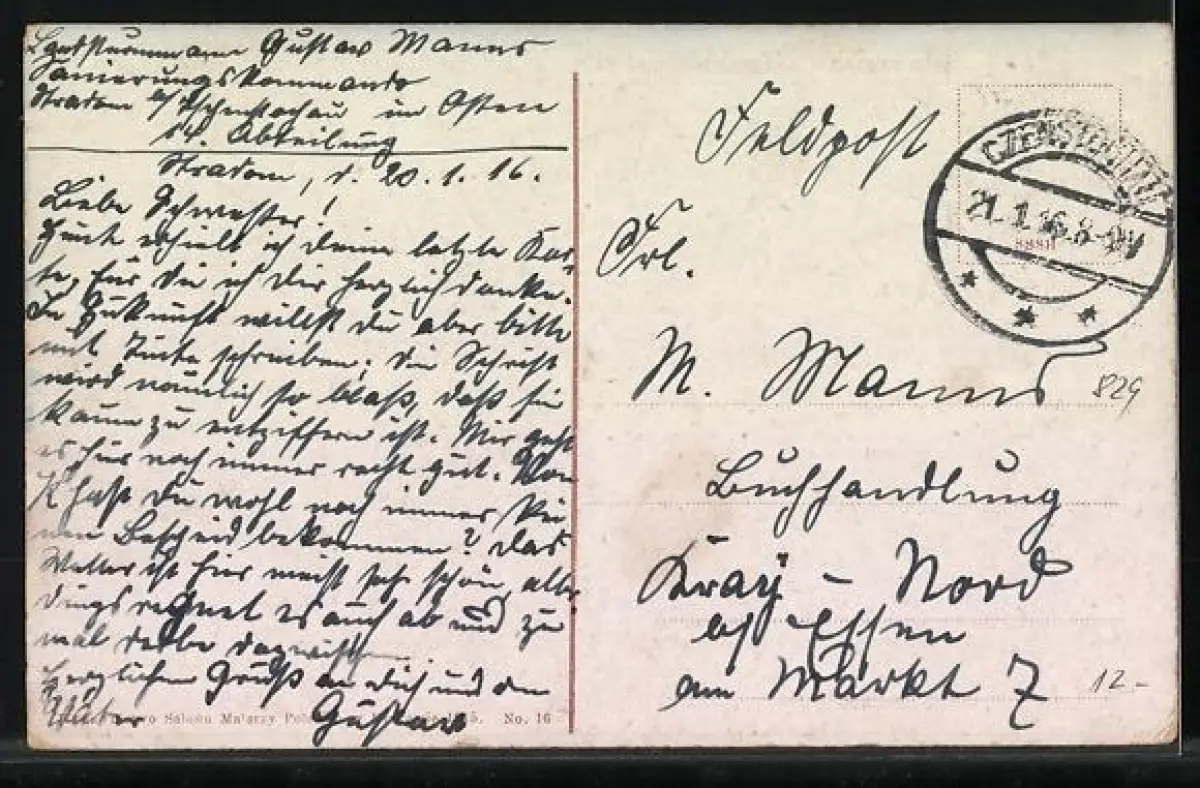 Landsturmmann Gustav Manns
Sanierungskommando
Stradom b/Tschenstochau im Osten
IV. Abteilung
Stradom, d. 20.1.16.
Liebe Schwester!
Heute erhielt ich deine letzte Kar-
te, für die ich dir herzlich danke.
In Zukunft willst du aber bitte
mit Tinte schreiben; die Schrift
wird nämlich so blaß, daß sie
kaum zu entziffern ist. Mir geht
es hier noch immer recht gut. Von
K hast du wohl noch immer kei-
nen Bescheid bekommen? Das
Wetter ist hier meist sehr schön, aller-
dings regnet es auch ab und zu
mal dazwischen.
Herzlichen Gruß an dich und
Gustav
Salonu Malarzy No. 16
Feldpost
Frl.
M. Manns
Buchhandlung
Kray - Nord
b/ Essen
am Markt 7
CZENSTOCHAU
21.1.16. 8-9V
829
12.-